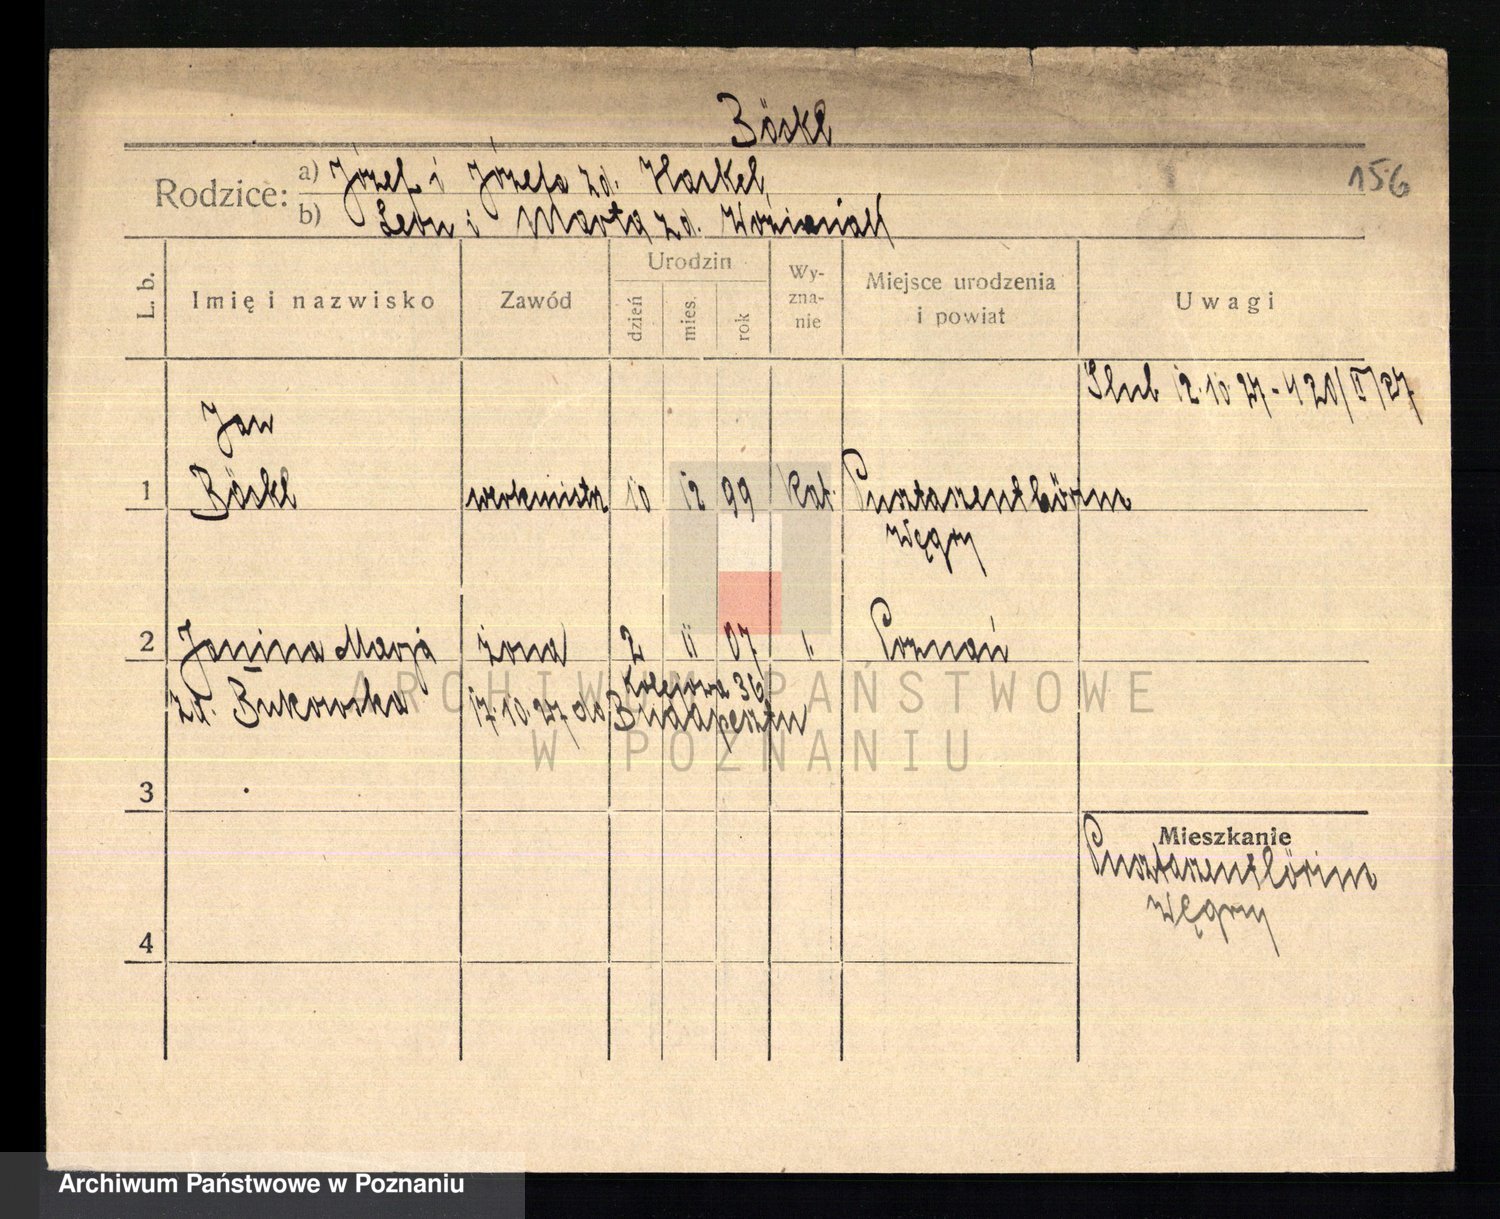 Böskl
156
Rodzice: a) Józef i Józefa zd. Haskel
b) Leon i Marta zd. Woźniniak
L. b.
Imię i nazwisko
Zawód
Urodzin
dzień
mies.
rok
Wy-
zna-
nie
Miejsce urodzenia
i powiat
Uwagi
Ślub 12.10.27 - 420/V/27
Jan
1 Böskl werkmistrz 10 12 99 Kat. Pusztaszentlörinc
Węgry
2 Janina Marja żona 2 11 07 " Poznań
zd. Bukowska 17.10.27 do Budapesztu
Kolejowa 36
3
Mieszkanie
Pusztaszentlörinc
Węgry
4
ARCHIWUM PAŃSTWOWE
W POZNANIU
Archiwum Państwowe w Poznaniu